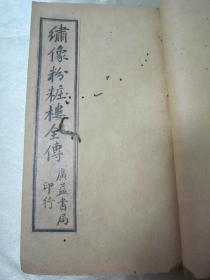 繡像粉粧樓全傳
廣益書局
印行